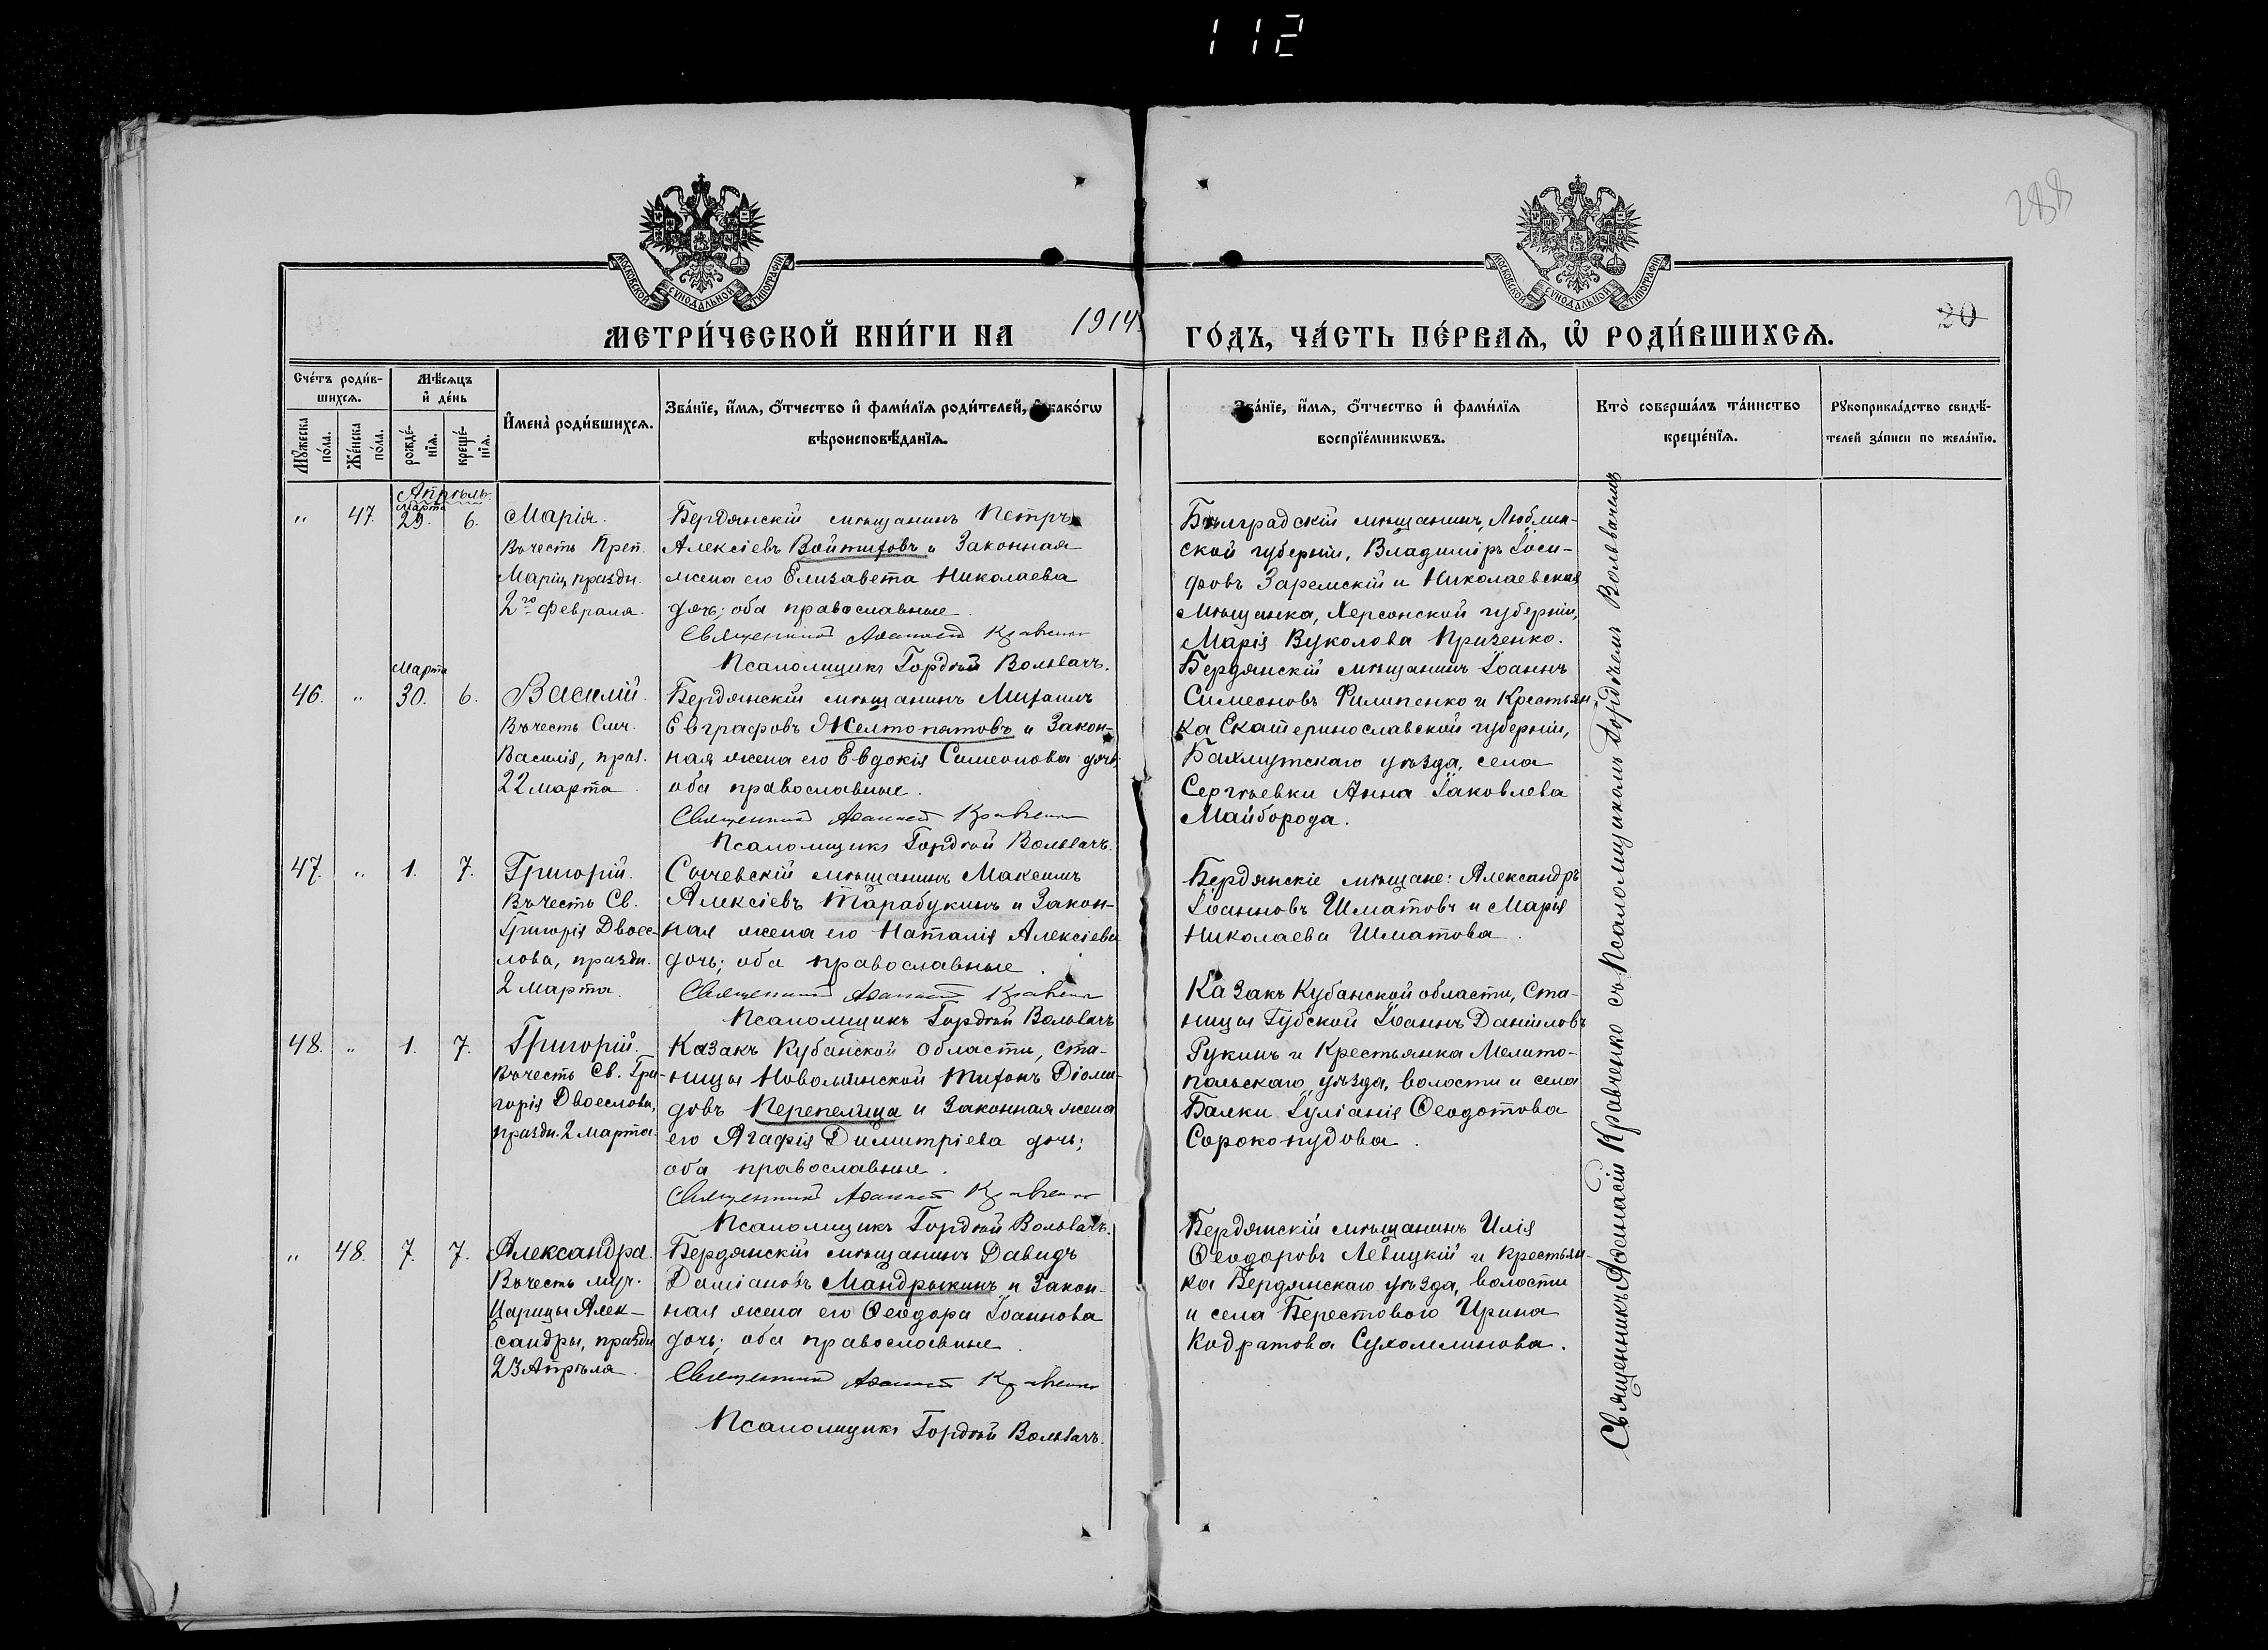 112
288
МОСКОВСКОЙ СѴНОДАЛЬНОЙ ТИПОГРАФІИ
МОСКОВСКОЙ СѴНОДАЛЬНОЙ ТИПОГРАФІИ
20
МЕТРИ́ЧЕСКОЙ КНИ́ГИ НА 1914 ГО́ДЪ, ЧА́СТЬ ПЕ́РВАѦ, Ѡ҆ РОДИ́ВШИХСѦ.
Сче́тъ роди́в-
шихсѧ.
Мѣ́сѧцъ
и҆ де́нь
Мꙋ́жеска
по́ла.
Же́нска
по́ла.
рожде́-
нїѧ.
креще́-
нїѧ.
И҆мена̀ роди́вшихсѧ.
Зва́нїе, и҆́мѧ, ѻ҆́тчество и҆ фами́лїѧ роди́телей, и҆ како́гѡ
вѣроисповѣ́данїѧ.
Зва́нїе, и҆́мѧ, ѻ҆́тчество и҆ фами́лїѧ
воспрїе́мникѡвъ.
Кто̀ соверша́лъ та́инство
креще́нїѧ.
Рꙋкоприкла́дство свидѣ́-
телей за́писи по жела́нїю.
Апрѣль.
Марта
" 47. 29. 6.
Марія.
Въ честь Преп.
Маріи, праздн.
2го Февраля.
Бердянскій мѣщанинъ Петръ
Алексіевъ Войтиховъ и Законная
жена его Елизавета Николаева
дочь; оба православные.
Священникъ Аѳанасій Кравченко
Псаломщикъ Гордѣй Вольвачъ.
Бѣлградскій мѣщанинъ, Люблин-
ской губерніи, Владиміръ Іоси-
фовъ Заремскій и Николаевская
мѣщанка, Херсонской губерніи,
Марія Вуколова Приженко.
Марта
46. " 30. 6.
Василій.
Въ честь Смч.
Василія, праз.
22 Марта.
Бердянскій мѣщанинъ Михаилъ
Евграфовъ Желтопятовъ и Закон-
ная жена его Евдокія Симеонова дочь
оба православные.
Священникъ Аѳанасій Кравченко
Псаломщикъ Гордѣй Вольвачъ.
Бердянскій мѣщанинъ Іоаннъ
Симеоновъ Филипенко и Крестьян-
ка Екатеринославской губерніи,
Бахмутскаго уѣзда, села
Сергѣевки Анна Іаковлева
Майборода.
47. " 1. 7.
Григорій.
Въ честь Св.
Григорія Двоес-
лова, праздн.
2 Марта.
Сычевскій мѣщанинъ Максимъ
Алексіевъ Тарабукинъ и Закон-
ная жена его Наталія Алексіева
дочь; оба православные.
Священникъ Аѳанасій Кравченко
Псаломщикъ Гордѣй Вольвачъ
Бердянскіе мѣщане: Александръ
Іоанновъ Шматовъ и Марія
Николаева Шматова.
48. " 1. 7.
Григорій.
Въ честь Св. Гри-
горія Двоеслова,
праздн. 2 Марта.
Казакъ Кубанской области, ста-
ницы Новоминской Тихонъ Діоми-
довъ Перепелица и Законная жена
его Агафія Димитріева дочь;
оба православные.
Священникъ Аѳанасій Кравченко
Псаломщикъ Гордѣй Вольвачъ.
Казакъ Кубанской области, Ста-
ницы Губской Іоаннъ Даніиловъ
Рукинъ и Крестьянка Мелито-
польскаго уѣзда, волости и села
Балки Іуліанія Ѳеодотова
Сорокопудова.
" 48. 7. 7.
Александра.
Въ честь муч.
Царицы Алек-
сандры, праздн
23 Апрѣля.
Бердянскій мѣщанинъ Давидъ
Даміановъ Мандрыкинъ и Закон-
ная жена его Ѳеодора Іоаннова
дочь; оба православные.
Священникъ Аѳанасій Кравченко
Псаломщикъ Гордѣй Вольвачъ.
Бердянскій мѣщанинъ Илія
Ѳеодоровъ Левицкій и крестьян-
ка Бердянскаго уѣзда, волости
и села Берестового Ирина
Кодратова Сухомлинова.
Священникъ Аѳанасій Кравченко съ Псаломщикомъ Гордѣемъ Вольвачемъ